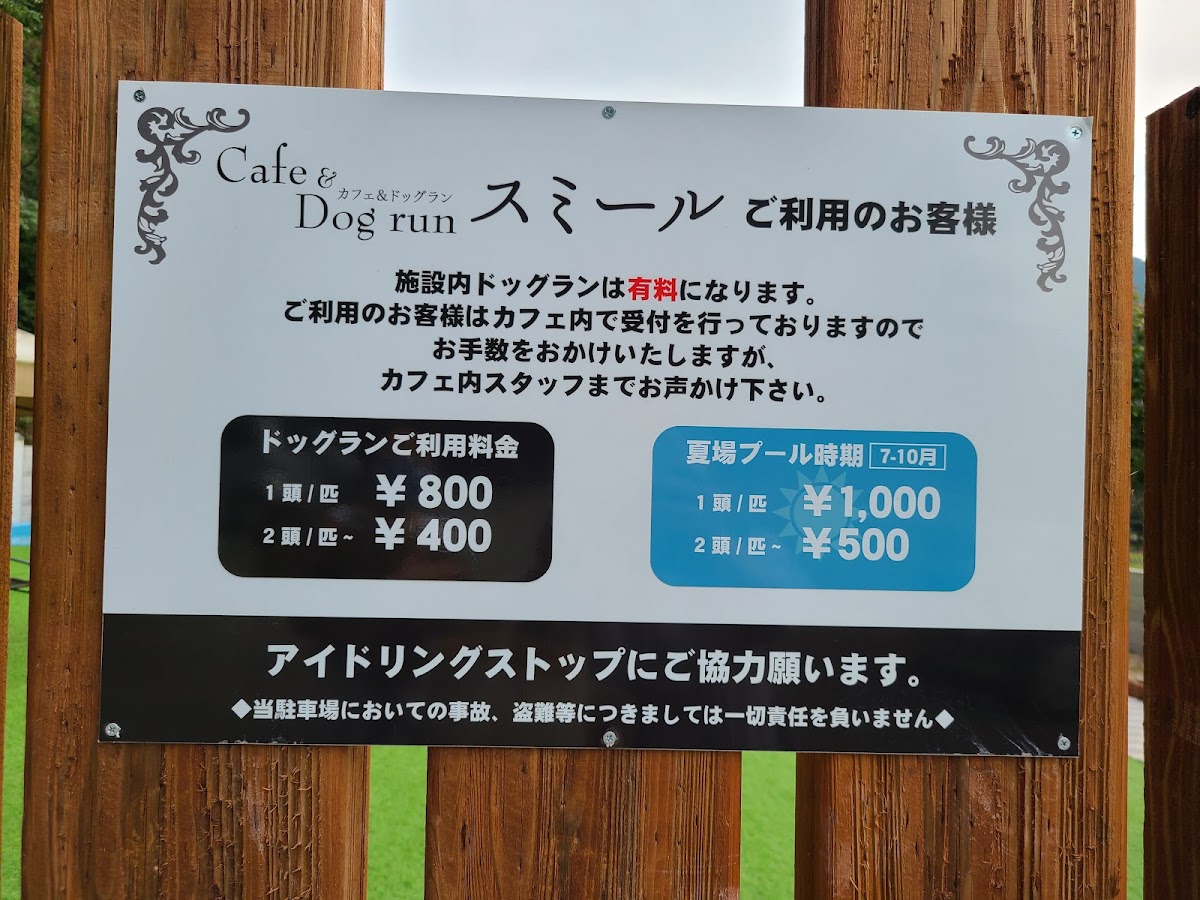 Cafe &
カフェ&ドッグラン
Dog run
スミール ご利用のお客様
施設内ドッグランは有料になります。
ご利用のお客様はカフェ内で受付を行っておりますので
お手数をおかけいたしますが、
カフェ内スタッフまでお声かけ下さい。
ドッグランご利用料金
1頭/匹 ¥800
2頭/匹~ ¥400
夏場プール時期 7-10月
1頭/匹 ¥1,000
2頭/匹~ ¥500
アイドリングストップにご協力願います。
◆当駐車場においての事故、盗難等につきましては一切責任を負いません◆